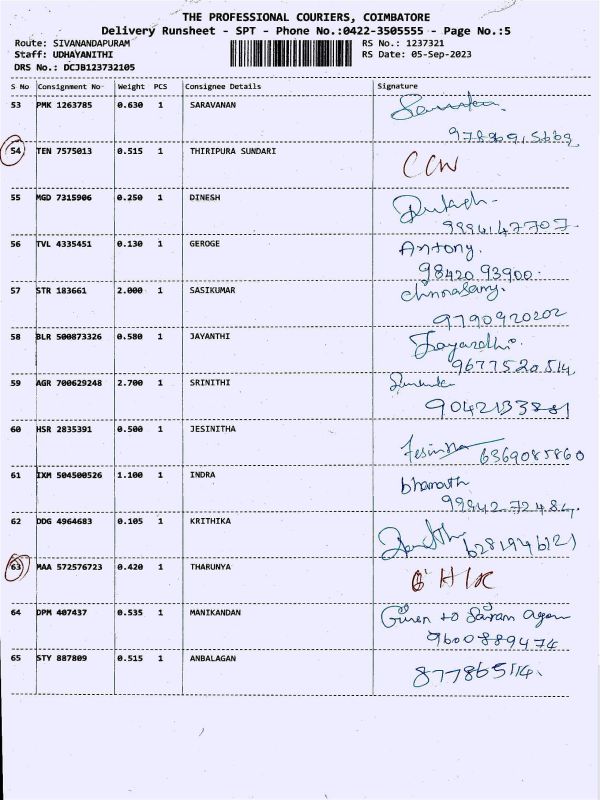 THE PROFESSIONAL COURIERS, COIMBATORE
Delivery Runsheet - SPT - Phone No.:0422-3505555 - Page No.:5
Route: SIVANANDAPURAM RS No.: 1237321
Staff: UDHAYANITHI RS Date: 05-Sep-2023
DRS No.: DCJB123732105
S No Consignment No Weight PCS Consignee Details Signature
53 PMK 1263785 0.630 1 SARAVANAN
54 TEN 7575013 0.515 1 THIRIPURA SUNDARI
55 MGD 7315906 0.250 1 DINESH
56 TVL 4335451 0.130 1 GEROGE Antony.
98420 93900
57 STR 183661 2.000 1 SASIKUMAR
9790920202
58 BLR 500873326 0.580 1 JAYANTHI
9677520514
59 AGR 700629248 2.700 1 SRINITHI
60 HSR 2835391 0.500 1 JESINITHA
6369085860
61 IXM 504500526 1.100 1 INDRA
62 DDG 4964683 0.105 1 KRITHIKA
63 MAA 572576723 0.420 1 THARUNYA
64 DPM 407437 0.535 1 MANIKANDAN Given to Sairam
9600889474
65 STY 887809 0.515 1 ANBALAGAN